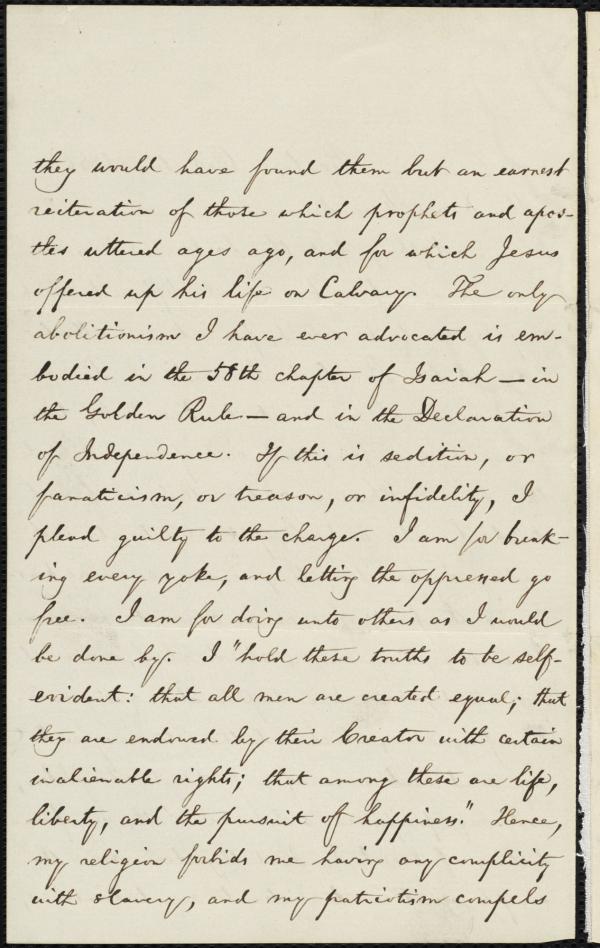 they would have found them but an earnest
reiteration of those which prophets and apos-
tles uttered ages ago, and for which Jesus
offered up his life on Calvary. The only
abolitionism I have ever advocated is em-
bodied in the 58th chapter of Isaiah — in
the Golden Rule — and in the Declaration
of Independence. If this is sedition, or
fanaticism, or treason, or infidelity, I
plead guilty to the charge. I am for break-
ing every yoke, and letting the oppressed go
free. I am for doing unto others as I would
be done by. I "hold these truths to be self-
evident: that all men are created equal; that
they are endowed by their Creator with certain
inalienable rights; that among these are life,
liberty, and the pursuit of happiness." Hence,
my religion forbids me having any complicity
with slavery, and my patriotism compels